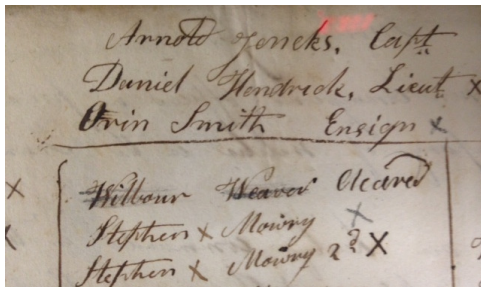 Arnold Jencks, Capt
Daniel Hendrick, Lieut x
Orin Smith Ensign x
x Wilbour Weaver Cleared
Stephen x Mowry x
x Stephen x Mowry 2d x